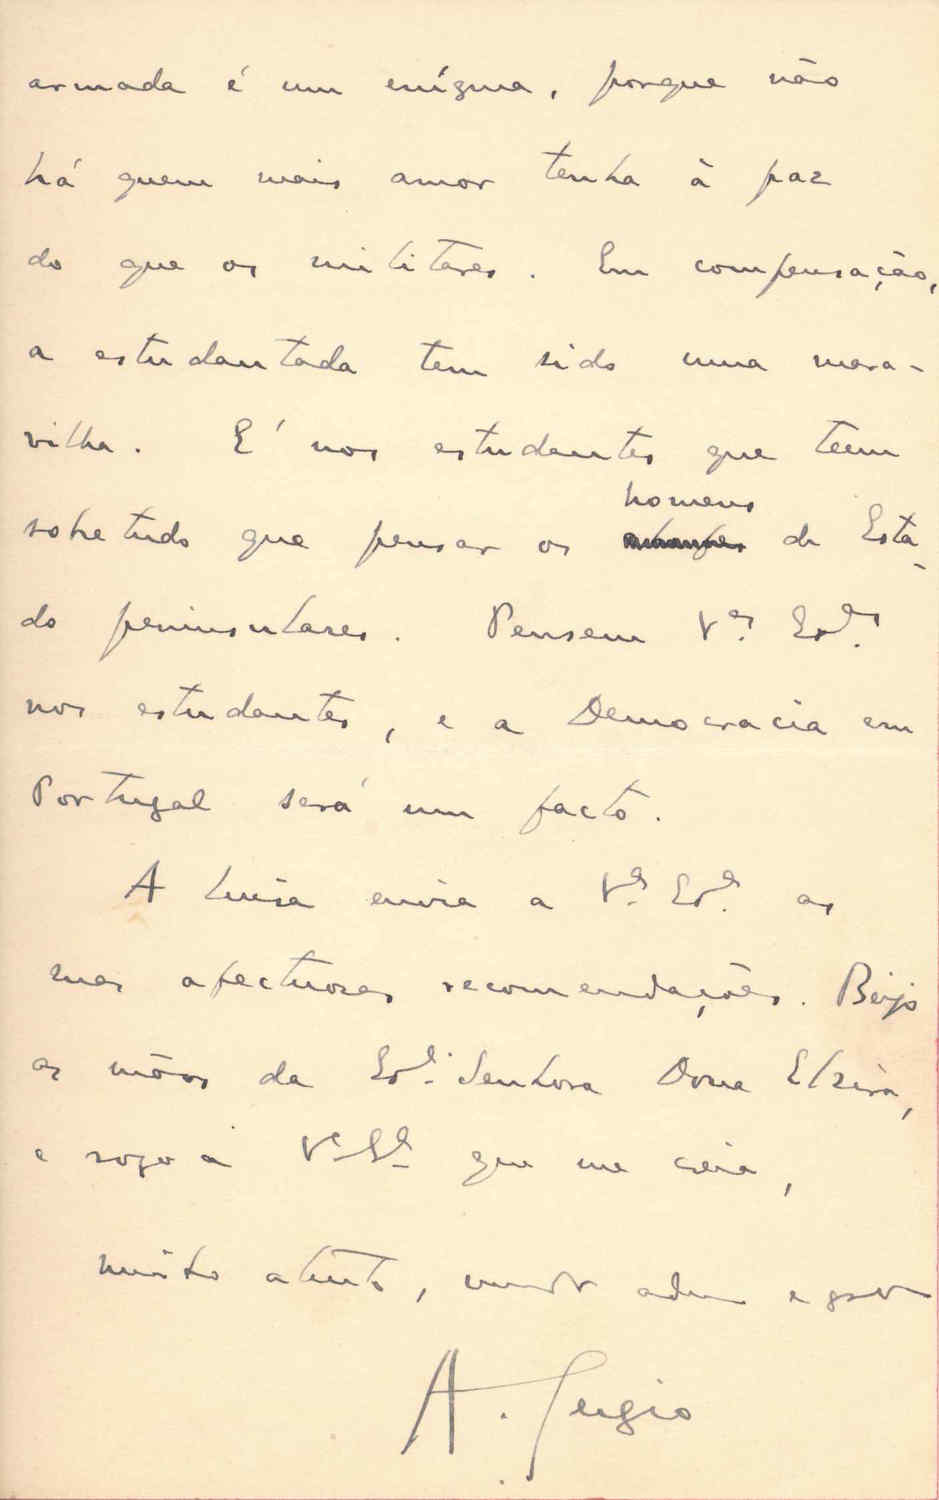 armada é um enígma, porque não
há quem mais amor tenha à paz
do que os militares. Em compensação,
a estudantada tem sido uma mara-
vilha. E' nos estudantes que teem
homens
sobretudo que pensar os de Esta-
do peninsulares. Pensem V.as Ex.as
nos estudantes, e a Democracia em
Portugal será um facto.
A Luisa envia a V.a Ex.a as
suas afectuosas recomendações. Beijo
as mãos da Ex.a Senhora Dona Elzira,
e rogo a V.a Ex.a que me creia,
muito atento, e
A. Sergio